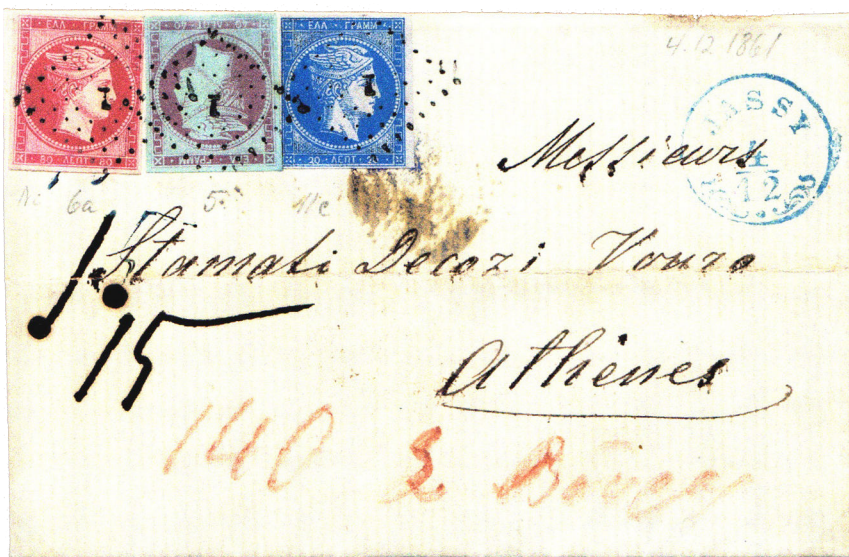 ΕΛΛ ΓΡΑΜΜ
40 ΛΕΠΤ 40
ΕΛΛ ΓΡΑΜΜ
ΕΛΛ ΓΡΑΜΜ
20 ΛΕΠΤ 20
1
1
1
4.12.1861
JASSY
4
12
6a
5
11c
Messieurs
Stamati Decozi Vouro
Athènes
15
140